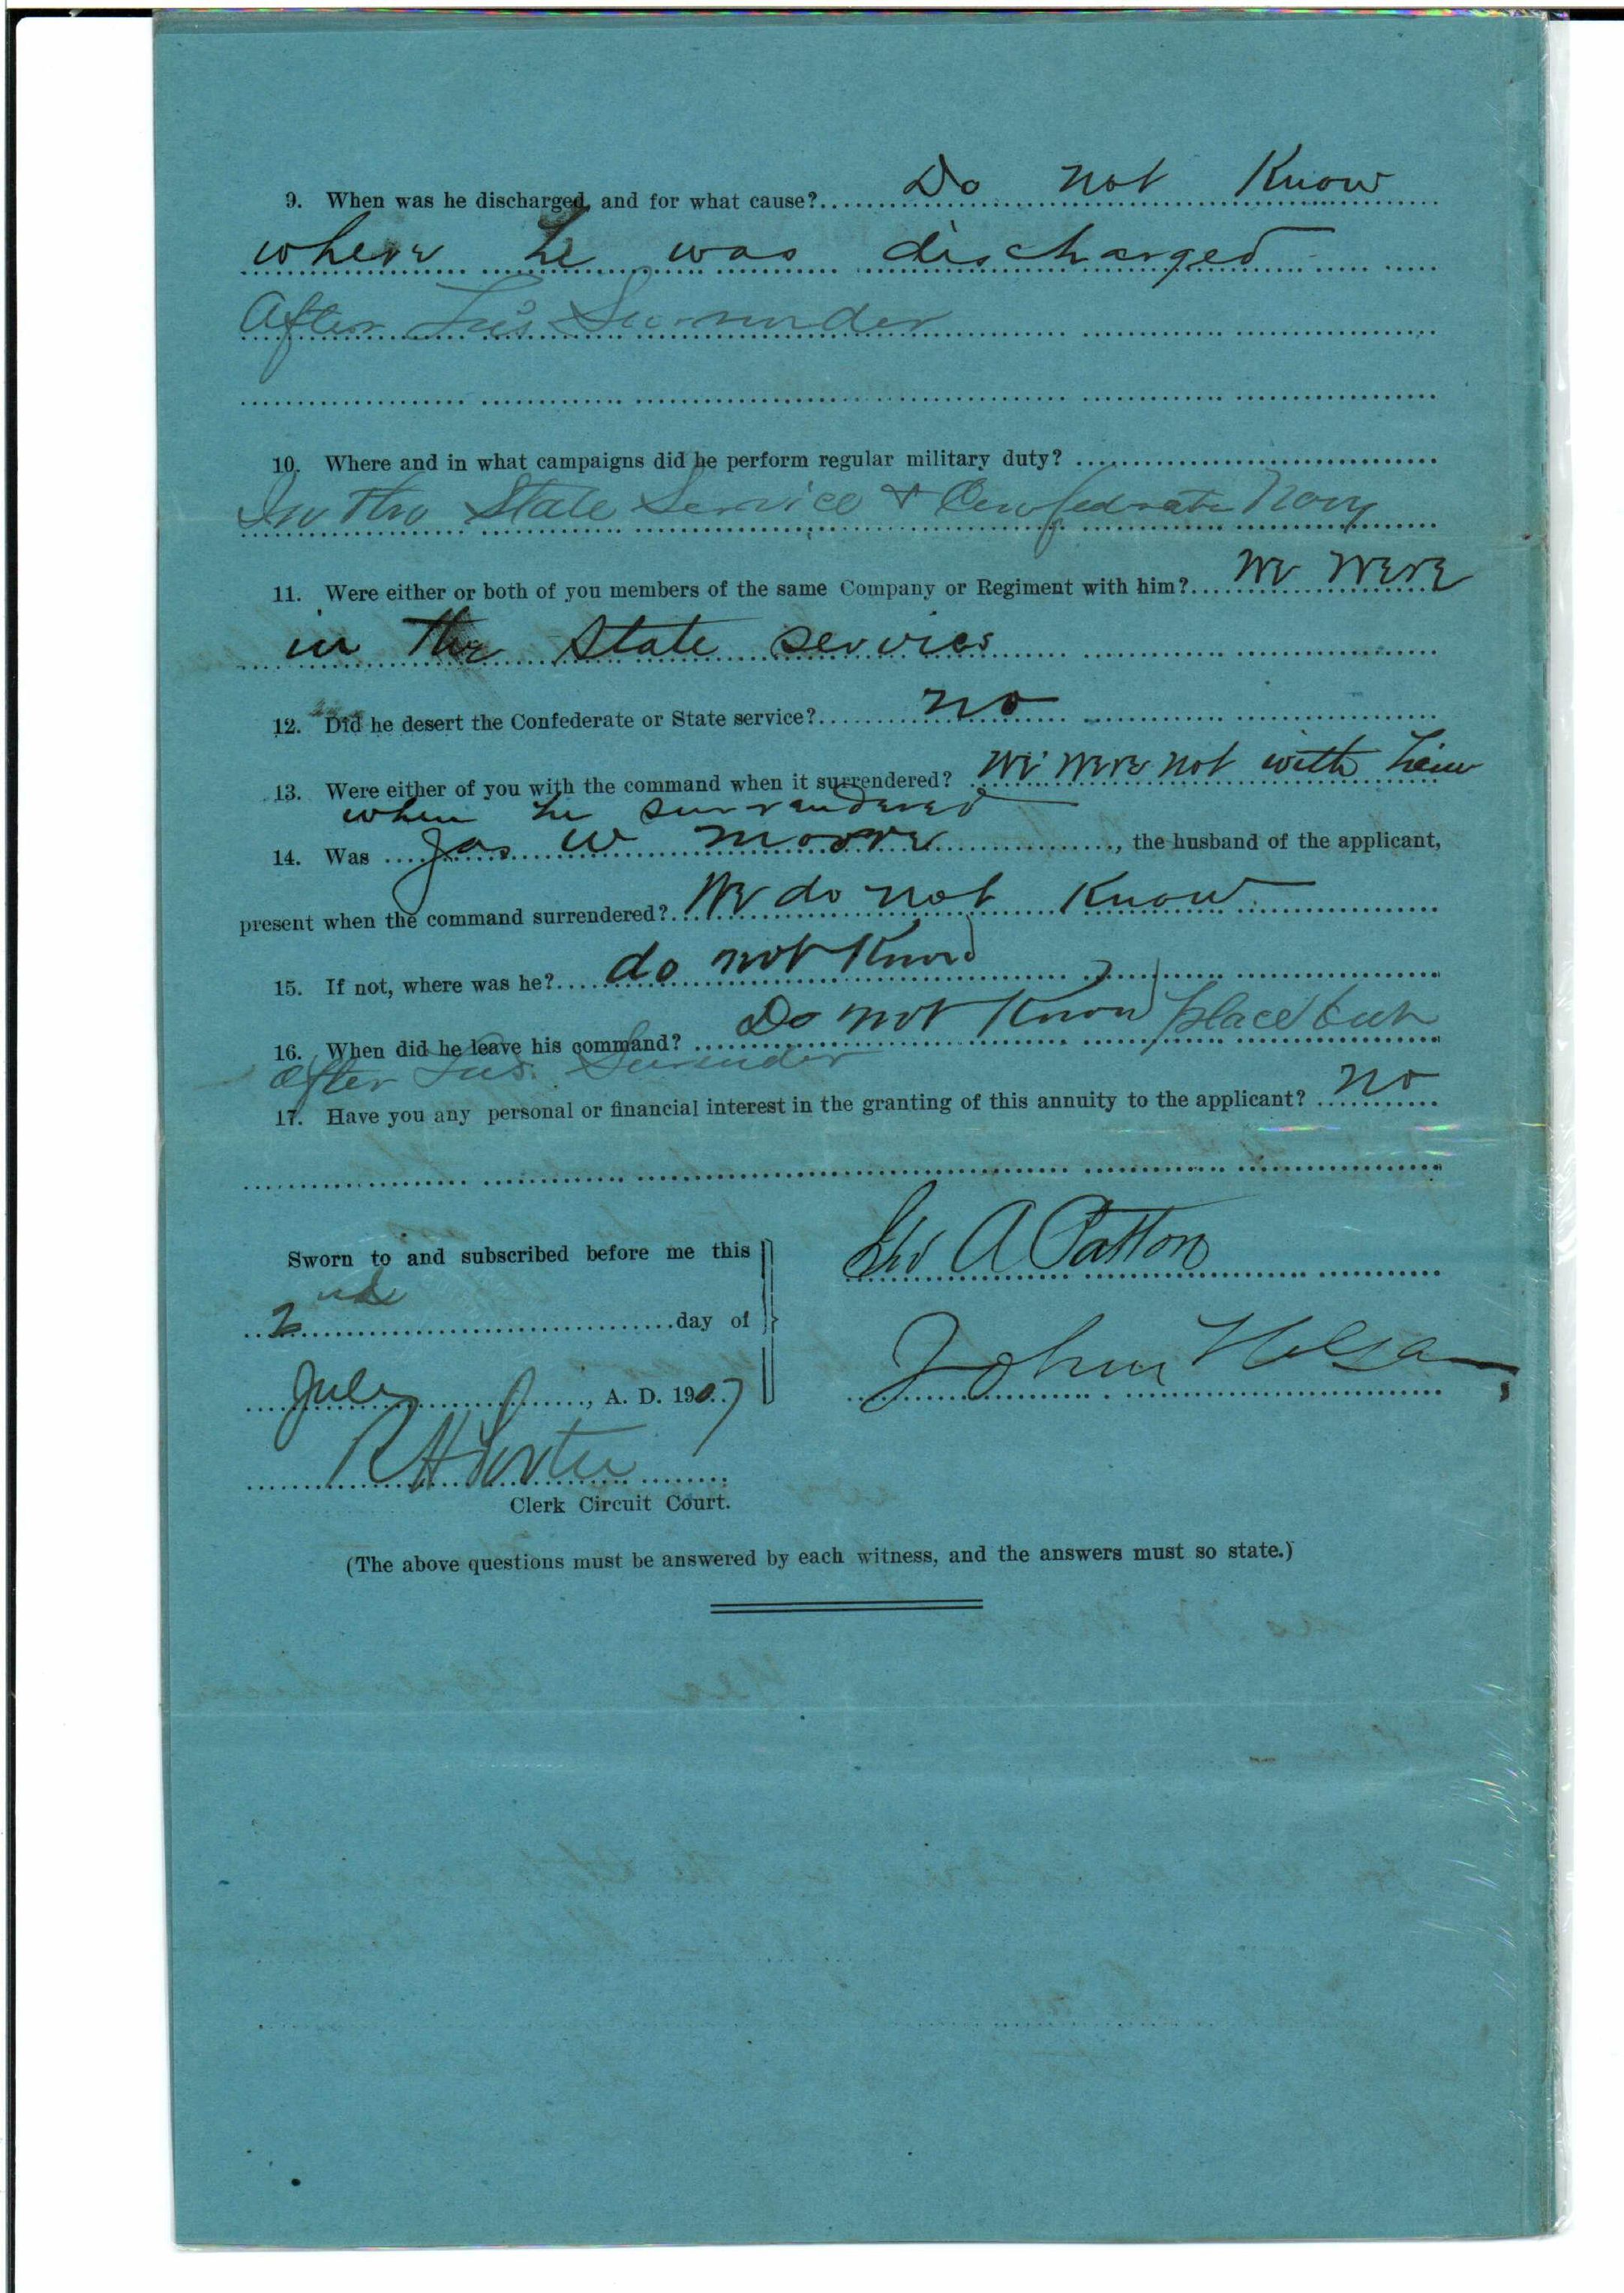 9. When was he discharged, and for what cause? Do not Know
where he was discharged
After Lee's Surrender
10. Where and in what campaigns did he perform regular military duty?
In the State Service & Confederate Navy
11. Were either or both of you members of the same Company or Regiment with him? We were
in the State service
12. Did he desert the Confederate or State service? no
13. Were either of you with the command when it surrendered? We were not with him
when he surrendered
14. Was Jas W Moore, the husband of the applicant,
present when the command surrendered? We do not Know
15. If not, where was he? do not Know
16. When did he leave his command? Do not Know place but
after Lees Surender
17. Have you any personal or financial interest in the granting of this annuity to the applicant? No
Sworn to and subscribed before me this
Geo A Patton
2nd day of
John
July, A. D. 1907
R H
Clerk Circuit Court.
(The above questions must be answered by each witness, and the answers must so state.)